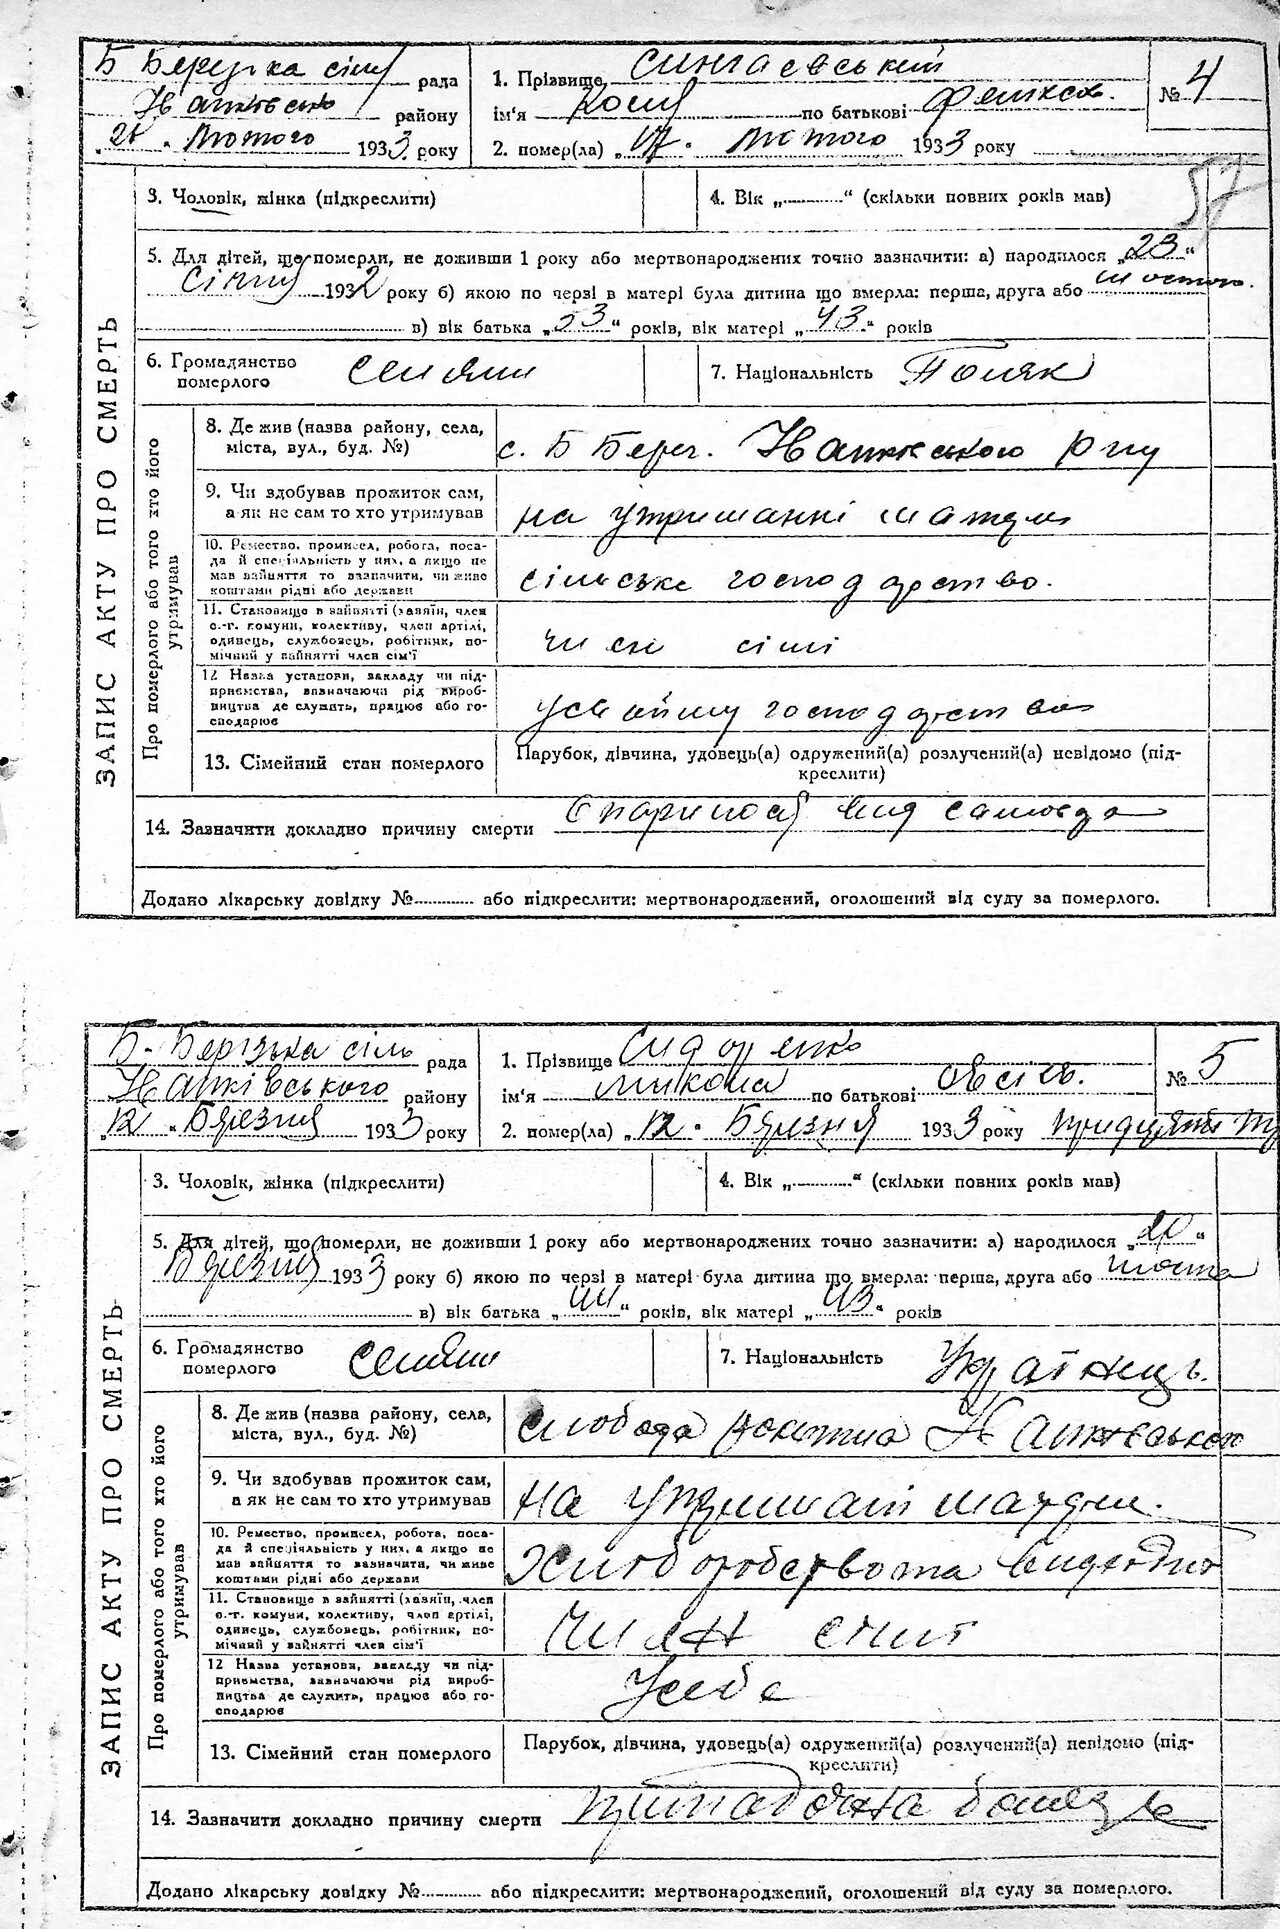 Б Березка сіль рада
району
"21" Лютого 1933 року
1. Прізвище Сингаєвський
ім'я по батькові Феліксов.
2. помер(ла) "17" Лютого 1933 року
№ 4
57
3. Чоловік, жінка (підкреслити)
4. Вік „ “ (скільки повних років мав)
5. Для дітей, що померли, не доживши 1 року або мертвонароджених точно зазначити: а) народилося „23“
Січня 1932 року б) якою по черзі в матері була дитина що вмерла: перша, друга або
в) вік батька „53“ років, вік матері „43“ років
6. Громадянство померлого селянин
7. Національність Поляк
ЗАПИС АКТУ ПРО СМЕРТЬ
Про померлого або того хто його утримував
8. Де жив (назва району, села,
міста, вул., буд. №)
с. Б Берез.
9. Чи здобував прожиток сам,
а як не сам то хто утримував
на утриманні матері
10. Ремество, промисел, робота, поса-
да й спеціяльність у них, а якщо не
мав зайняття то зазначити, чи живе
коштами рідні або держави
сільське господарство.
11. Становище в зайнятті (хазяїн, член
с.-г. комуни, колективу, член артілі,
одинець, службовець, робітник, по-
мічний у зайнятті член сім'ї
член сімї
12 Назва установи, закладу чи під-
приємства, зазначаючи рід вироб-
ництва де служить, працює або го-
сподарює
господарства
13. Сімейний стан померлого
Парубок, дівчина, удовець(а) одружений(а) розлучений(а) невідомо (під-
креслити)
14. Зазначити докладно причину смерти
Додано лікарську довідку № або підкреслити: мертвонароджений, оголошений від суду за померлого.
Б-Берізька сіль рада
району
"12" Березня 1933 року
1. Прізвище Сидоренко
ім'я Микола по батькові Овсієв.
2. помер(ла) "12" Березня 1933 року
№ 5
3. Чоловік, жінка (підкреслити)
4. Вік „ “ (скільки повних років мав)
5. Для дітей, що померли, не доживши 1 року або мертвонароджених точно зазначити: а) народилося
Березня 1933 року б) якою по черзі в матері була дитина що вмерла: перша, друга або шоста
в) вік батька „44“ років, вік матері „43“ років
6. Громадянство померлого селянин
7. Національність Українець.
ЗАПИС АКТУ ПРО СМЕРТЬ
Про померлого або того хто його утримував
8. Де жив (назва району, села,
міста, вул., буд. №)
слобода
9. Чи здобував прожиток сам,
а як не сам то хто утримував
на утриманні матери.
10. Ремество, промисел, робота, поса-
да й спеціяльність у них, а якщо не
мав зайняття то зазначити, чи живе
коштами рідні або держави
11. Становище в зайнятті (хазяїн, член
с.-г. комуни, колективу, член артілі,
одинець, службовець, робітник, по-
мічний у зайнятті член сім'ї
Член
12 Назва установи, закладу чи під-
приємства, зазначаючи рід вироб-
ництва де служить, працює або го-
сподарює
У себе
13. Сімейний стан померлого
Парубок, дівчина, удовець(а) одружений(а) розлучений(а) невідомо (під-
креслити)
14. Зазначити докладно причину смерти
Додано лікарську довідку № або підкреслити: мертвонароджений, оголошений від суду за померлого.